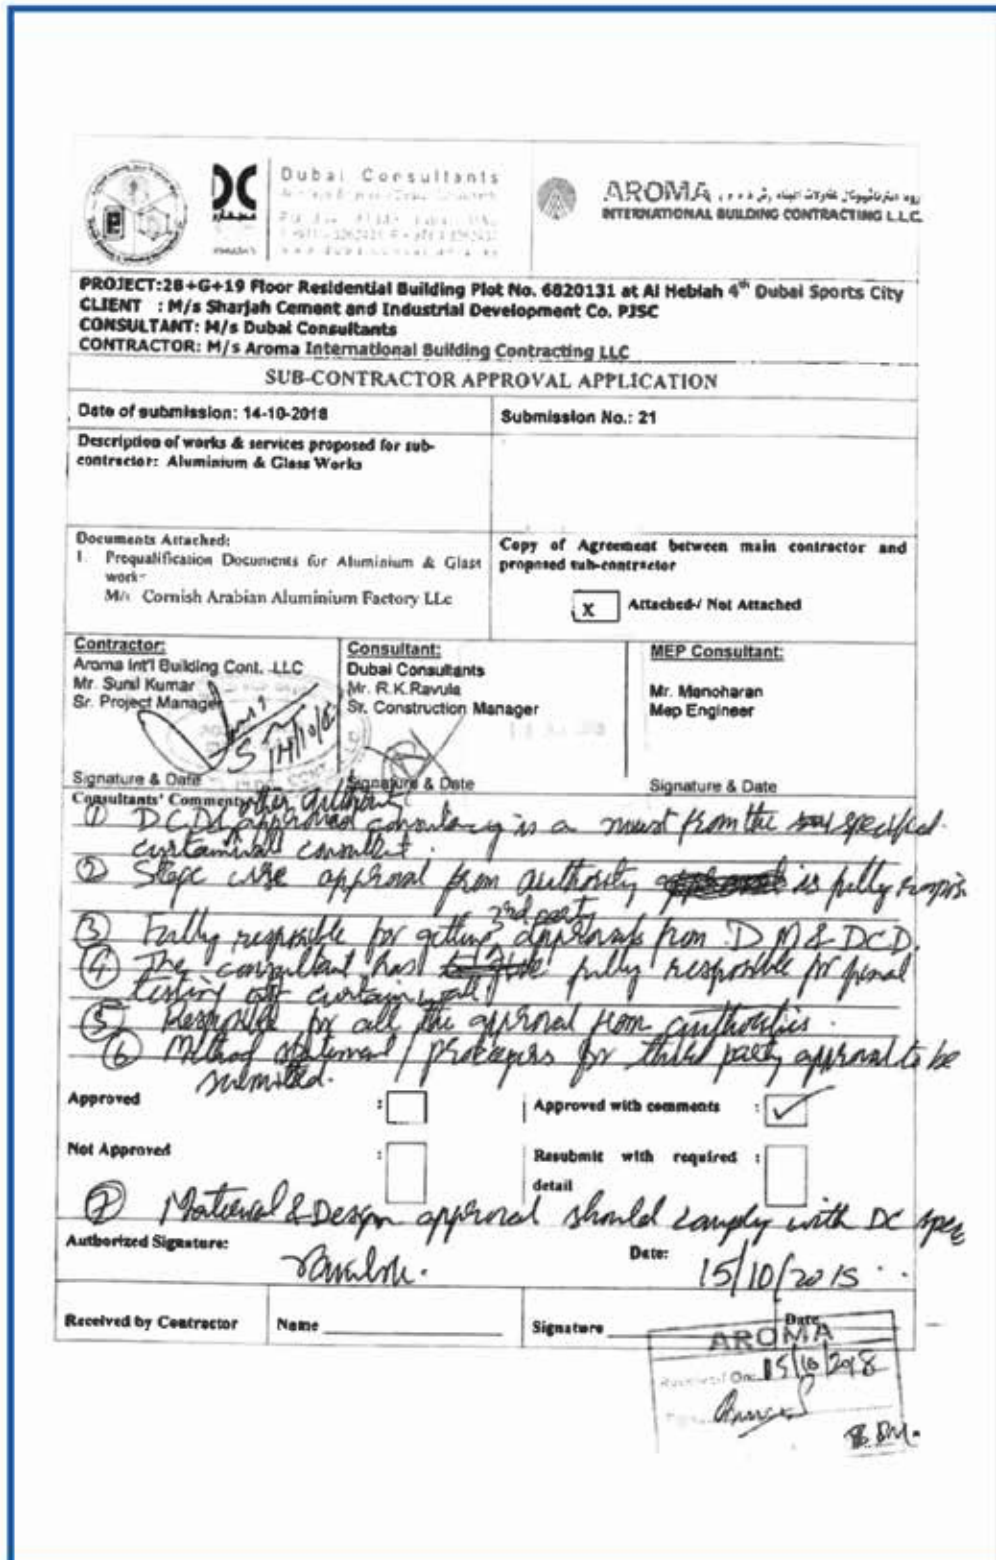 Dubai Consultants
AROMA
INTERNATIONAL BUILDING CONTRACTING L.L.C.
PROJECT:2B+G+19 Floor Residential Building Plot No. 6820131 at Al Hebiah 4th Dubai Sports City
CLIENT : M/s Sharjah Cement and Industrial Development Co. PJSC
CONSULTANT: M/s Dubai Consultants
CONTRACTOR: M/s Aroma International Building Contracting LLC
SUB-CONTRACTOR APPROVAL APPLICATION
Date of submission: 14-10-2018
Submission No.: 21
Description of works & services proposed for sub-
contractor: Aluminium & Glass Works
Documents Attached:
1. Prequalification Documents for Aluminium & Glass
work-
M/s Cornish Arabian Aluminium Factory LLc
Copy of Agreement between main contractor and
proposed sub-contractor
X Attached-/ Not Attached
Contractor:
Aroma Int'l Building Cont. LLC
Mr. Sunil Kumar
Sr. Project Manager
14/10/18
Signature & Date
Consultant:
Dubai Consultants
Mr. R.K.Ravula
Sr. Construction Manager
Signature & Date
MEP Consultant:
Mr. Manoharan
Mep Engineer
Signature & Date
Consultants' Comments
other authority
① DCD approved consultancy is a must from the specified
curtainwall consultant.
② Stage wise approval from authority is fully
3rd party
③ Fully responsible for getting approvals from DM & DCD.
④ The consultant has fully responsible for final
testing of curtain wall
⑤ Responsible for all the approval from authorities.
⑥ Method statement / for third party approval to be
submitted.
Approved :
Approved with comments : ✓
Not Approved :
Resubmit with required :
detail
⑦ Material & Design approval should comply with DC spec
Authorized Signature:
Date: 15/10/2018
Received by Contractor
Name
Signature
Date
AROMA
Received On: 15/10/2018